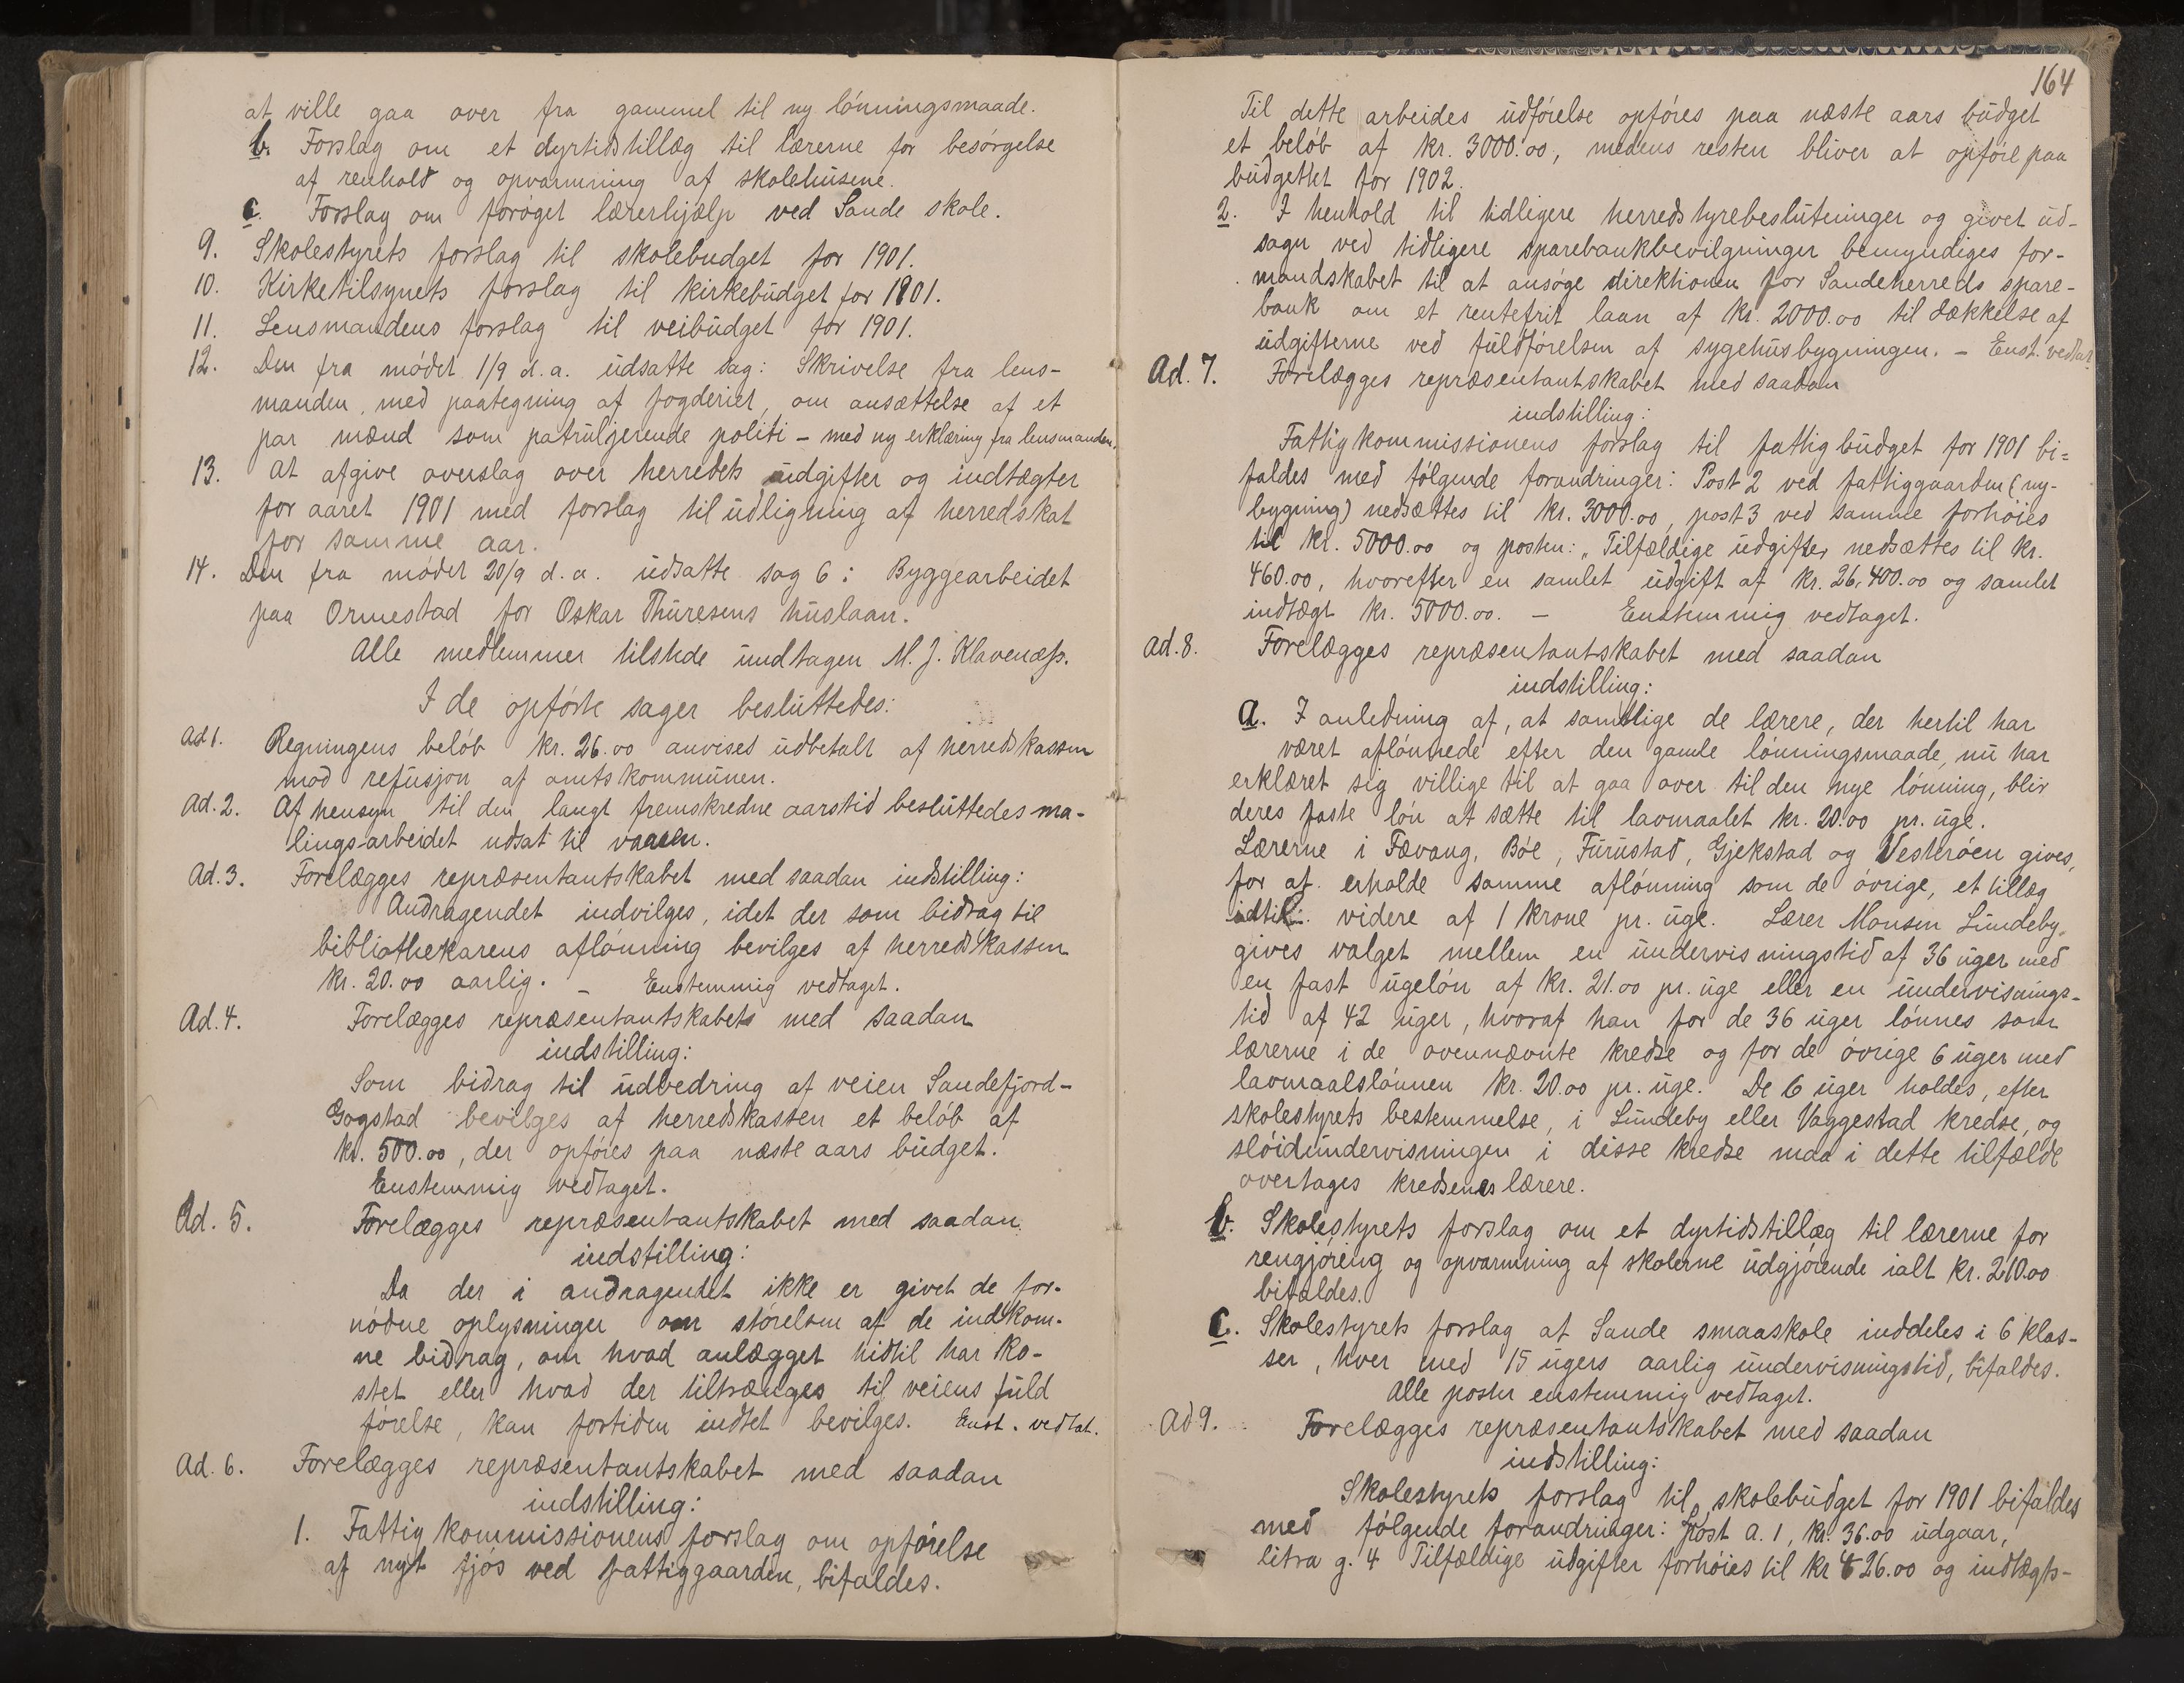 at ville gaa over fra gammel til ny lønningsmaade.
b. Forslag om et dyrtidstillæg til lærerne for besørgelse
af renhold og opvarmning af skolehusene.
c. Forslag om forøget lærerhjælp ved Sande skole.
9. Skolestyrets forslag til skolebudget for 1901.
10. Kirketilsynets forslag til kirkebudget for 1901.
11. Lensmandens forslag til veibudget for 1901.
12. Den fra mødet 1/9 d.a. udsatte sag: Skrivelse fra lens-
manden, med paategning af fogderiet, om ansættelse af et
par mænd som patruljerende politi – med ny erklæring fra lensmanden.
13. At afgive overslag over herredets udgifter og indtægter
for aaret 1901 med forslag til udligning af herredskat
for samme aar.
14. Den fra mødet 20/9 d.a. udsatte sag 6: Byggearbeidet
paa Ormestad for Oskar Thuresens huslaan.
Alle medlemmer tilstede undtagen M. J. Klavenæss.
I de opførte sager besluttedes:
Ad 1. Regningens beløb kr. 26.00 anvises udbetalt af herredskassen
mod refusjon af amtskommunen.
Ad. 2. Af hensyn til den langt fremskredne aarstid besluttedes ma-
lingsarbeidet udsat til vaaren.
Ad. 3. Forelægges repræsentantskabet med saadan indstilling:
Andragendet indvilges, idet der som bidrag til
bibliothekarens aflønning bevilges af herredskassen
kr. 20.00 aarlig. – Enstemmig vedtaget.
Ad. 4. Forelægges repræsentantskabets med saadan
indstilling:
Som bidrag til udbedring af veien Sandefjord-
Gogstad bevilges af herredskassen et beløb af
kr. 500.00, der opføres paa næste aars budget.
Enstemmig vedtaget.
Ad. 5. Forelægges repræsentantskabet med saadan
indstilling:
Da der i andragendet ikke er givet de for-
nødne oplysninger om størelsen af de indkom-
ne bidrag, om hvad anlægget hidtil har ko-
stet eller hvad der tiltrænges til veiens fuld
førelse, kan fortiden indtet bevilges. Enst. vedtat.
Ad. 6. Forelægges repræsentantskabet med saadan
indstilling:
1. Fattigkommissionens forslag om opførelse
af nyt fjøs ved fattiggaarden, bifaldes.
164
Til dette arbeides udførelse opføres paa næste aars budget
et beløb af kr. 3000.00, medens resten bliver at opføre paa
budgettet for 1902.
2. I henhold til tidligere herredstyrebeslutninger og givet ud-
sagn ved tidligere sparebankbevilgninger bemyndiges for-
mandskabet til at ansøge direktionen for Sandeherreds spare-
bank om et rentefrit laan af kr. 2000.00 til dækkelse af
udgifterne ved fuldførelsen af sygehusbygningen. – Enst. vedtat.
Ad. 7. Forelægges repræsentantskabet med saadan
indstilling:
Fattigkommissionens forslag til fattigbudget for 1901 bi=
faldes med følgende forandringer: Post 2 ved fattiggaarden (ny-
bygning) nedsættes til kr. 3000.00, post 3 ved samme forhøies
til kr. 5000.00 og posten: „Tilfældige udgifter nedsættes til kr.
460.00, hvorefter en samlet udgift af kr. 26,400.00 og samlet
indtægt kr. 5000.00. – Enstemmig vedtaget.
Ad. 8. Forelægges repræsentantskabet med saadan
indstilling:
a. I anledning af, at samtlige de lærere, der hertil har
været aflønnede efter den gamle lønningsmaade, nu har
erklæret sig villige til at gaa over til den nye lønning, bliv
deres faste løn at sætte til lavmaalet kr. 20.00 pr. uge.
Lærerne i Fævang, Bøe, Furustad, Gjekstad og Vesterøen gives,
for at erholde samme aflønning som de øvrige, et tillæg
indtil videre af 1 krone pr. uge. Lærer Monsen Lundeby
gives valget mellem en undervisningstid af 36 uger med
en fast ugeløn af kr. 21.00 pr. uge eller en undervisnings-
tid af 42 uger, hvoraf han for de 36 uger lønnes som
lærerne i de ovennævnte kredse og for de øvrige 6 uger med
lavmaalslønnen kr. 20.00 pr. uge. De 6 uger holdes, efter
skolestyrets bestemmelse, i Lundeby eller Vaggestad kredse, og
sløidundervisningen i disse kredse maa i dette tilfælde
overtages kredsenes lærere.
b. Skolestyrets forslag om et dyrtidstillæg til lærerne for
rengjøring og opvarmning af skolerne udgjørende ialt kr. 210.00
bifaldes.
c. Skolestyrets forslag at Sande smaaskole inddeles i 6 klas-
ser, hver med 15 ugers aarlig undervisningstid, bifaldes.
Alle poster enstemmig vedtaget.
Ad 9. Forelægges repræsentantskabet med saadan
indstilling:
Skolestyrets forslag til skolebudget for 1901 bifaldes
med følgende forandringer: Post a. 1, kr. 36.00 udgaar,
litra g. 4 Tilfældige udgifter forhøies til kr 426.00 og indtægts-